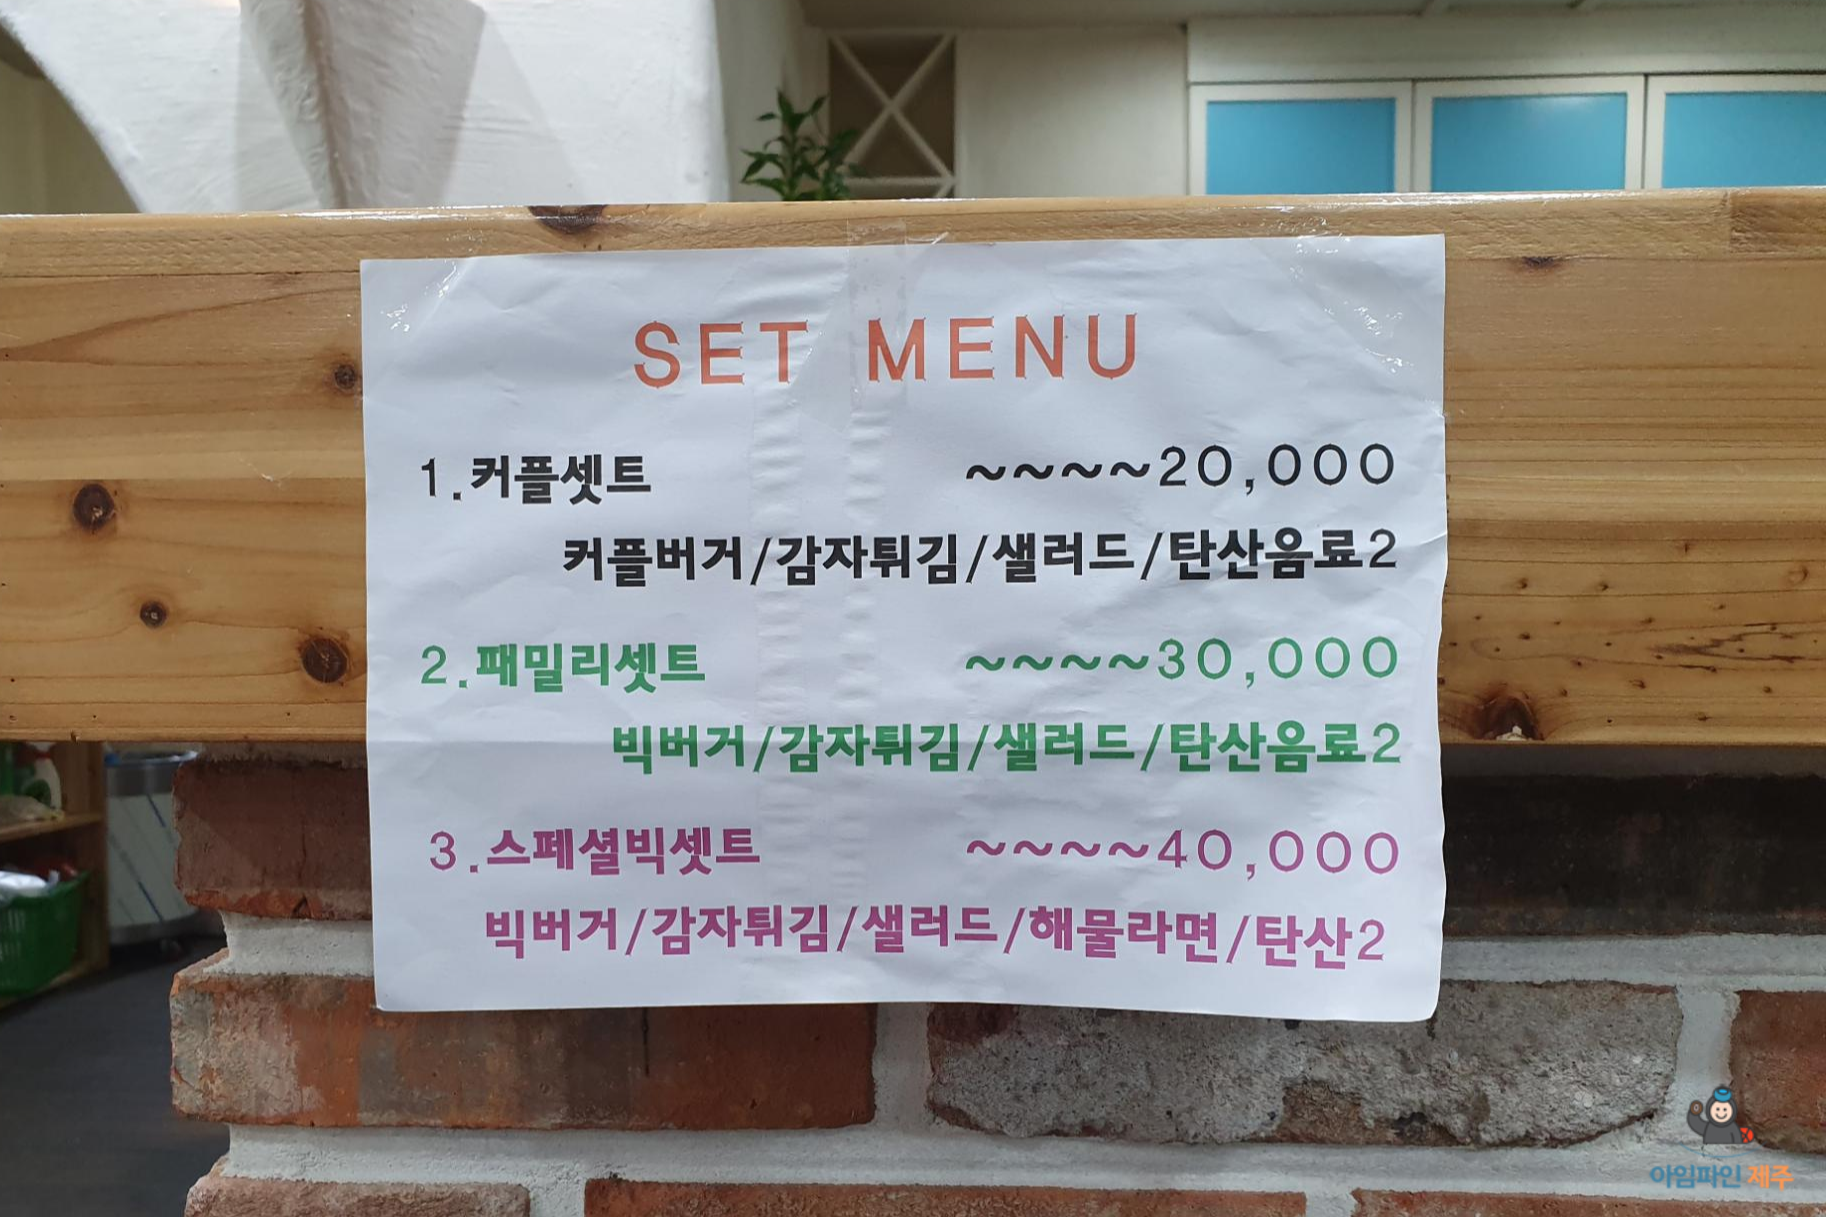 SET MENU
1.커플셋트 ~~~~20,000
커플버거/감자튀김/샐러드/탄산음료2
2.패밀리셋트 ~~~~30,000
빅버거/감자튀김/샐러드/탄산음료2
3.스페셜빅셋트 ~~~~40,000
빅버거/감자튀김/샐러드/해물라면/탄산2
아임파인 제주